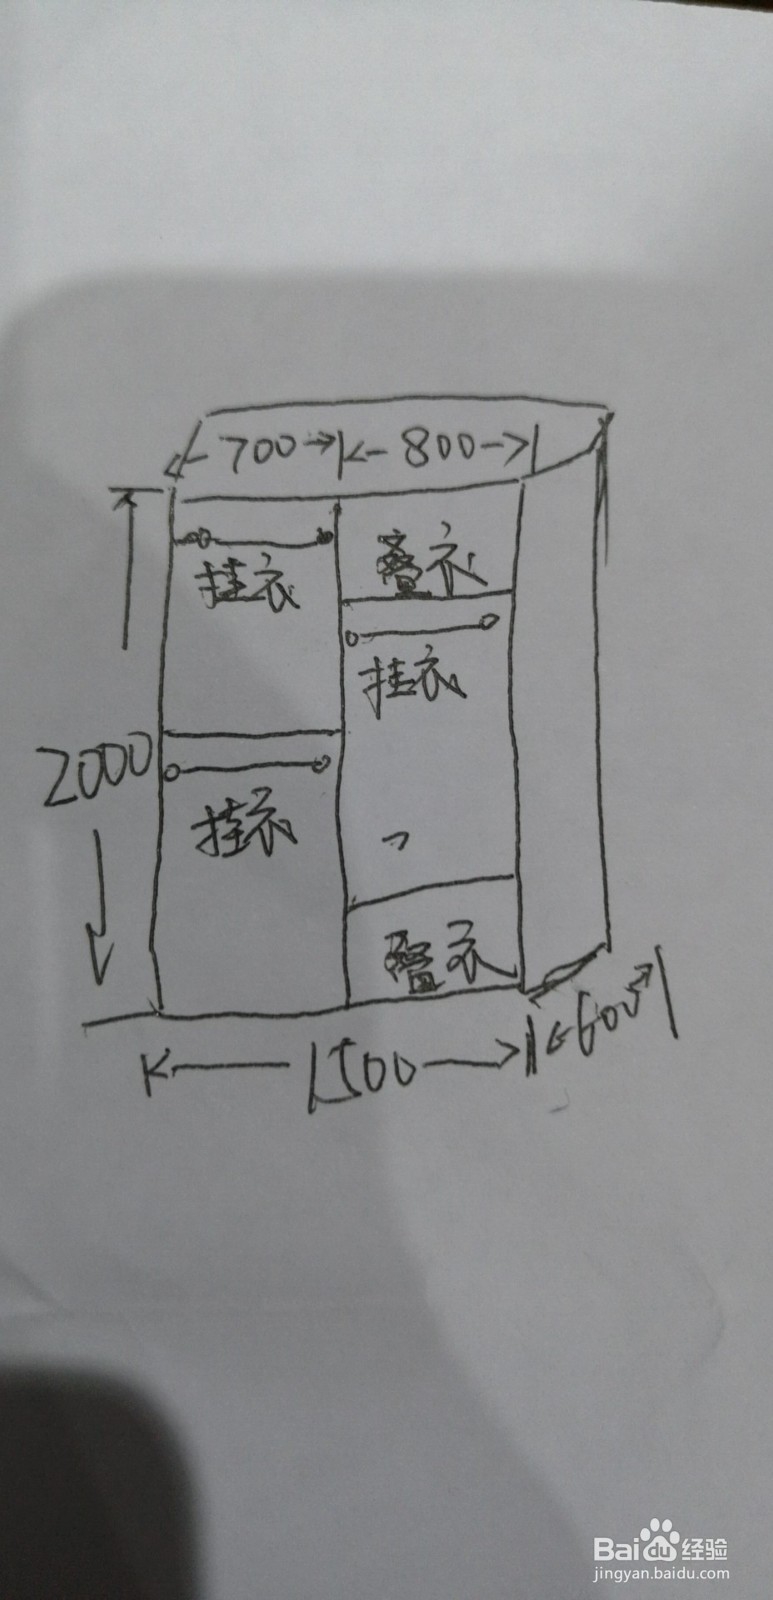 700 800
叠衣
挂衣
挂衣
2000
挂衣
叠衣
1500 600
Baidu经验
jingyan.baidu.com